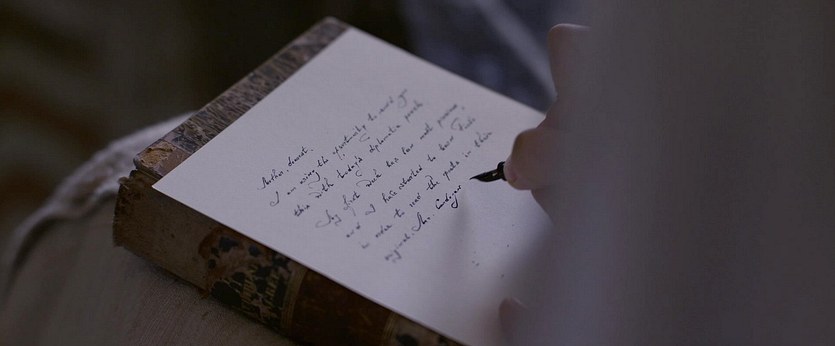 Mother, dearest.
I am using the opportunity to send you
this with today's diplomatic pouch.
My first week has two week
and I have started to learn
in order to read the poets in their
original. The